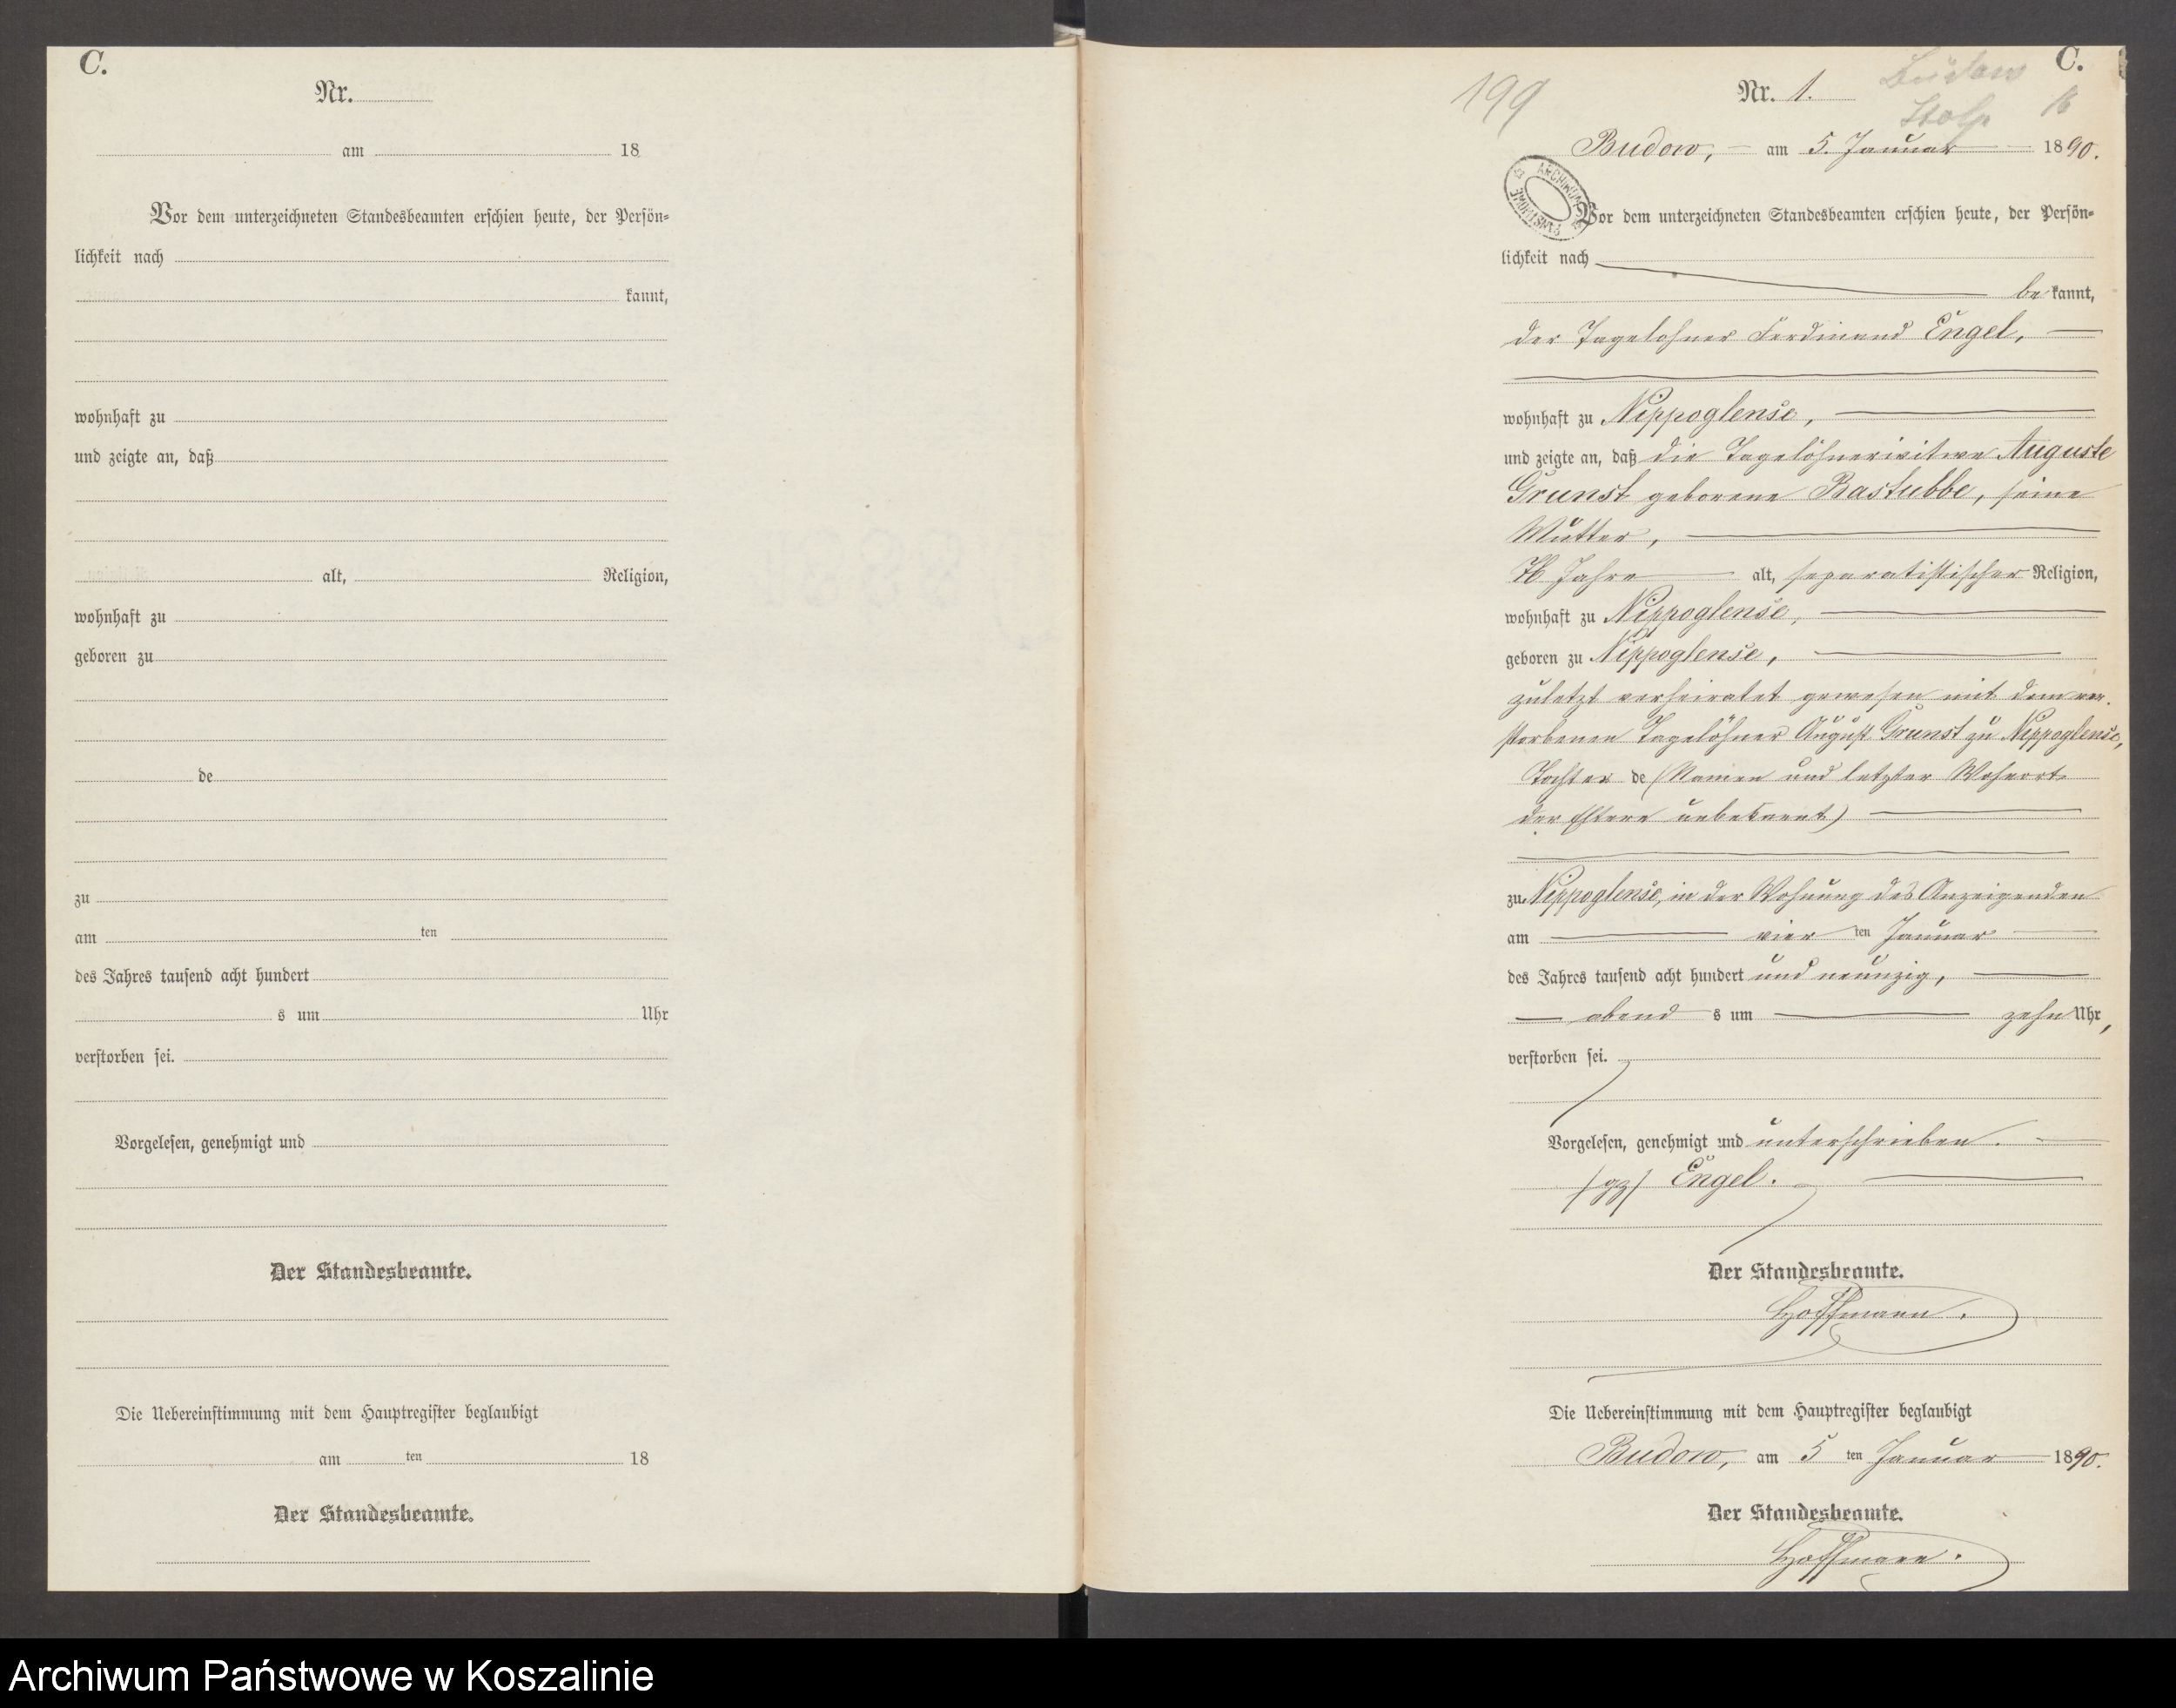 C.
Nr.
am 18
Vor dem unterzeichneten Standesbeamten erschien heute, der Persön=
lichkeit nach
kannt,
wohnhaft zu
und zeigte an, daß
alt, Religion,
wohnhaft zu
geboren zu
de
zu
am ten
des Jahres tausend acht hundert
s um Uhr
verstorben sei.
Vorgelesen, genehmigt und
Der Standesbeamte.
Die Uebereinstimmung mit dem Hauptregister beglaubigt
am ten 18
Der Standesbeamte.
C.
Budow
Stolp
199
Nr. 1.
Budow, am 5. Januar 1890.
ARCHIWUM PAŃSTWOWE
Vor dem unterzeichneten Standesbeamten erschien heute, der Persön=
lichkeit nach
be kannt,
der Tagelöhner Ferdinand Engel,
wohnhaft zu Nippoglense,
und zeigte an, daß die Tagelöhnerwitwe Auguste
Grunst geborene Bastubbe, seine
Mutter,
76 Jahre alt, separatistischer Religion,
wohnhaft zu Nippoglense,
geboren zu Nippoglense,
zuletzt verheiratet gewesen mit dem ver-
storbenen Tagelöhner August Grunst zu Nippoglense,
Tochter de (Namen und letzter Wohnort
der Eltern unbekannt)
zu Nippoglense, in der Wohnung des Anzeigenden
am vier ten Januar
des Jahres tausend acht hundert und neunzig,
abend s um zehn Uhr,
verstorben sei.
Vorgelesen, genehmigt und unterschrieben.
(gz) Engel.
Der Standesbeamte.
Hoffmann.
Die Uebereinstimmung mit dem Hauptregister beglaubigt
Budow, am 5 ten Januar 1890.
Der Standesbeamte.
Hoffmann.
Archiwum Państwowe w Koszalinie